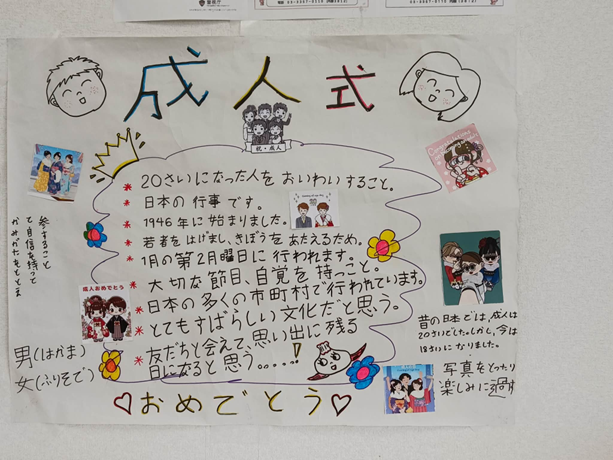 警察庁
成人式
祝・成人
*20さいになった人をおいわいすること。
*日本の行事です。
*1946年に始まりました。
*若者をはげまし、きぼうをあたえるため。
*1月の第2月曜日に行われます。
*大切な節目、自覚を持つこと。
*日本の多くの市町村で行われています。
*とてもすばらしい文化だと思う。
*友だちと会えて、思い出に残る
日になると思う。....!
参することで
自信を持って
成人おめでとう
男(はかま)
女(ふりそで)
昔の日本では、成人は
20さいでした。しかし、今は
18さいになりました。
写真をとったり
楽しみに過す
♡おめでとう♡